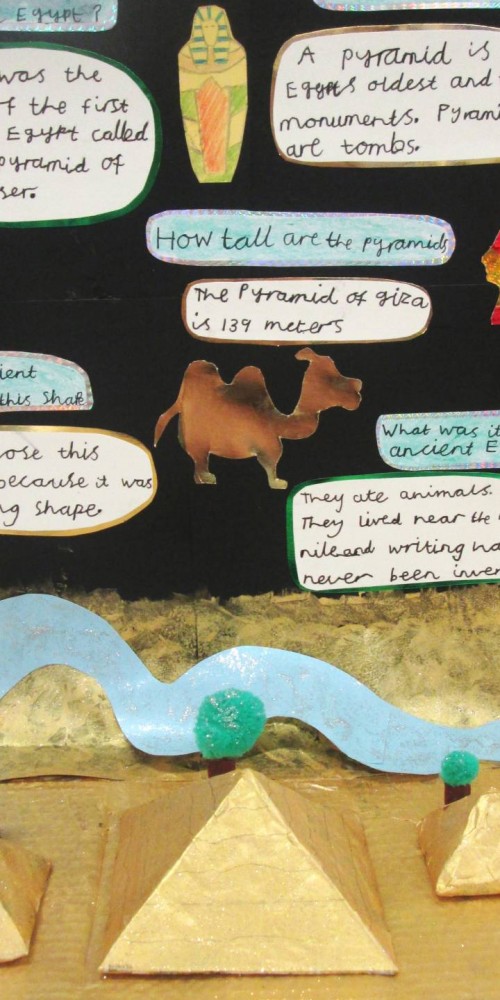 Egypt?
was the
of the first
Egypt called
pyramid of
ser.
A pyramid is
Egypts oldest and
monuments. Pyrami
are tombs.
How tall are the pyramids
The Pyramid of giza
is 139 meters
ient
this Shap
ose this
because it was
ng shape.
What was it
ancient E
They ate animals.
They lived near the
nile and writing ha
never been inven